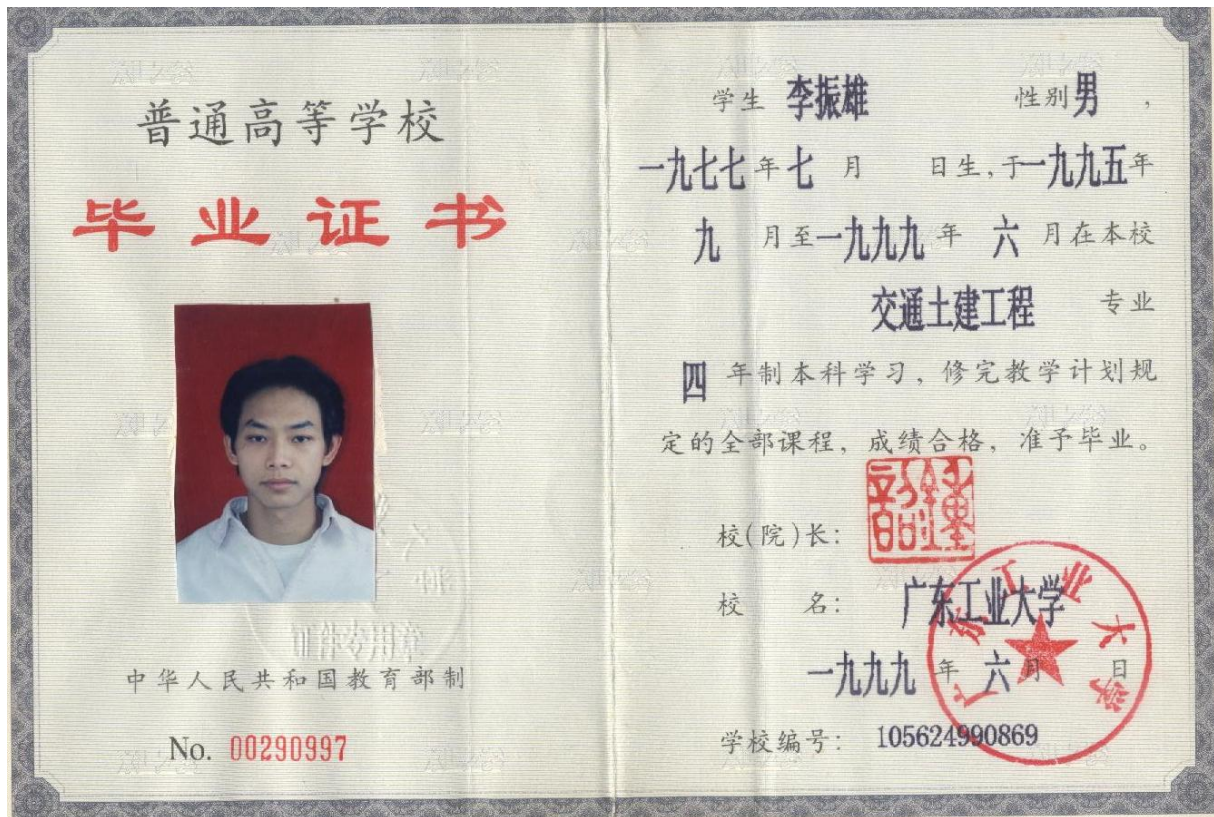 普通高等学校
毕业证书
证件专用章
中华人民共和国教育部制
No. 00290997
学生 李振雄 性别 男 ,
一九七七 年 七 月 日生, 于 一九九五 年
九 月至 一九九九 年 六 月在本校
交通土建工程 专业
四 年制本科学习, 修完教学计划规
定的全部课程, 成绩合格, 准予毕业。
校(院)长:
校 名: 广东工业大学
广东工业大学
一九九九 年 六 月 日
学校编号: 105624990869